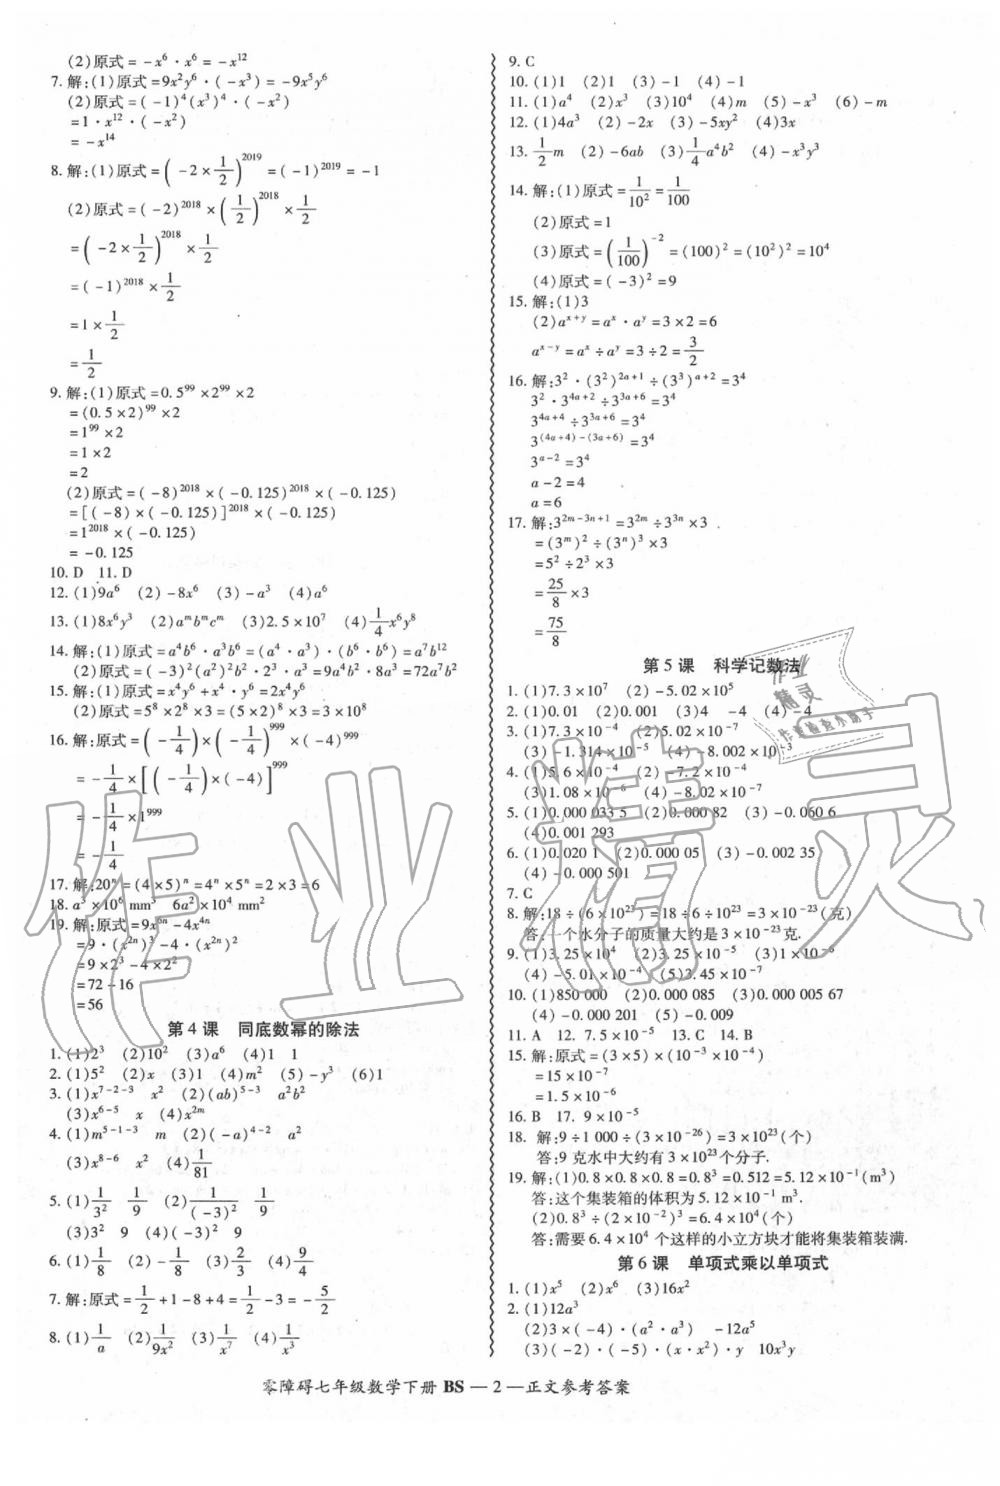 (2)原式=-x⁶·x⁶=-x¹²
7. 解:(1)原式=9x²y⁶·(-x³)=-9x⁵y⁶
(2)原式=(-1)⁴(x³)⁴·(-x²)
=1·x¹²·(-x²)
=-x¹⁴
8. 解:(1)原式=(-2×1/2)²⁰¹⁹=(-1)²⁰¹⁹=-1
(2)原式=(-2)²⁰¹⁸×(1/2)²⁰¹⁸×1/2
=(-2×1/2)²⁰¹⁸×1/2
=(-1)²⁰¹⁸×1/2
=1×1/2
=1/2
9. 解:(1)原式=0.5⁹⁹×2⁹⁹×2
=(0.5×2)⁹⁹×2
=1⁹⁹×2
=1×2
=2
(2)原式=(-8)²⁰¹⁸×(-0.125)²⁰¹⁸×(-0.125)
=[(-8)×(-0.125)]²⁰¹⁸×(-0.125)
=1²⁰¹⁸×(-0.125)
=-0.125
10. D 11. D
12. (1)9a⁶ (2)-8x⁶ (3)-a³ (4)a⁶
13. (1)8x⁶y³ (2)aᵐbᵐcᵐ (3)2.5×10⁷ (4)1/4x⁶y⁸
14. 解:(1)原式=a⁴b⁶·a³b⁶=(a⁴·a³)·(b⁶·b⁶)=a⁷b¹²
(2)原式=(-3)²(a²)²b²·2³·a³=9a⁴b²·8a³=72a⁷b²
15. 解:(1)原式=x⁴y⁶+x⁴·y⁶=2x⁴y⁶
(2)原式=5⁸×2⁸×3=(5×2)⁸×3=3×10⁸
16. 解:原式=(-1/4)×(-1/4)⁹⁹⁹×(-4)⁹⁹⁹
=-1/4×[(-1/4)×(-4)]⁹⁹⁹
=-1/4×1⁹⁹⁹
=-1/4
17. 解:20ⁿ=(4×5)ⁿ=4ⁿ×5ⁿ=2×3=6
18. a³×10⁶ mm³ 6a²×10⁴ mm²
19. 解:原式=9x⁶ⁿ-4x⁴ⁿ
=9·(x²ⁿ)³-4·(x²ⁿ)²
=9×2³-4×2²
=72-16
=56
第4课 同底数幂的除法
1. (1)2³ (2)10² (3)a⁶ (4)1 1
2. (1)5² (2)x (3)1 (4)m² (5)-y³ (6)1
3. (1)x⁷⁻²⁻³ x² (2)(ab)⁵⁻³ a²b²
(3)x⁶⁻⁵ x (4)x²ᵐ
4. (1)m⁵⁻¹⁻³ m (2)(-a)⁴⁻² a²
(3)x⁸⁻⁶ x² (4)1/81
5. (1)1/3² 1/9 (2)1/(-3)² 1/9
(3)3² 9 (4)(-3)² 9
6. (1)1/8 (2)-1/8 (3)3/2 (4)9/4
7. 解:原式=1/2+1-8+4=1/2-3=-5/2
8. (1)1/a (2)1/9x² (3)1/x⁷ (4)1/x³
9. C
10. (1)1 (2)1 (3)-1 (4)-1
11. (1)a⁴ (2)x³ (3)10⁴ (4)m (5)-x³ (6)-m
12. (1)4a³ (2)-2x (3)-5xy² (4)3x
13. 1/2m (2)-6ab (3)1/4a⁴b² (4)-x³y³
14. 解:(1)原式=1/10²=1/100
(2)原式=1
(3)原式=(1/100)⁻²=(100)²=(10²)²=10⁴
(4)原式=(-3)²=9
15. 解:(1)3
(2)aˣ⁺ʸ=aˣ·aʸ=3×2=6
aˣ⁻ʸ=aˣ÷aʸ=3÷2=3/2
16. 解:3²·(3²)²ᵃ⁺¹÷(3³)ᵃ⁺²=3⁴
3²·3⁴ᵃ⁺²÷3³ᵃ⁺⁶=3⁴
3⁴ᵃ⁺⁴÷3³ᵃ⁺⁶=3⁴
3⁽⁴ᵃ⁺⁴⁾⁻⁽³ᵃ⁺⁶⁾=3⁴
3ᵃ⁻²=3⁴
a-2=4
a=6
17. 解:3²ᵐ⁻³ⁿ⁺¹=3²ᵐ÷3³ⁿ×3
=(3ᵐ)²÷(3ⁿ)³×3
=5²÷2³×3
=25/8×3
=75/8
第5课 科学记数法
1. (1)7.3×10⁷ (2)-5.02×10⁵
2. (1)0.01 (2)0.001 (3)4 -4 (4)-4
3. (1)7.3×10⁻⁴ (2)5.02×10⁻⁷
(3)-1.314×10⁻⁵ (4)-8.002×10⁻³
4. (1)5.6×10⁻⁴ (2)-7.2×10⁻⁴
(3)1.08×10⁻⁶ (4)-8.02×10⁻⁷
5. (1)0.000 033 5 (2)0.000 82 (3)-0.060 6
(4)0.001 293
6. (1)0.020 1 (2)0.000 05 (3)-0.002 35
(4)-0.000 501
7. C
8. 解:18÷(6×10²³)=18÷6÷10²³=3×10⁻²³(克)
答:一个水分子的质量大约是3×10⁻²³克.
9. (1)3.25×10⁴ (2)3.25×10⁻⁵ (3)1×10⁻⁶
(4)-5.01×10⁻⁴ (5)3.45×10⁻⁷
10. (1)850 000 (2)0.000 085 (3)0.000 005 67
(4)-0.000 201 (5)-0.009
11. A 12. 7.5×10⁻⁵ 13. C 14. B
15. 解:原式=(3×5)×(10⁻³×10⁻⁴)
=15×10⁻⁷
=1.5×10⁻⁶
16. B 17. 9×10⁻⁵
18. 解:9÷1 000÷(3×10⁻²⁶)=3×10²³(个)
答:9克水中大约有3×10²³个分子.
19. 解:(1)0.8×0.8×0.8=0.8³=0.512=5.12×10⁻¹(m³)
答:这个集装箱的体积为5.12×10⁻¹ m³.
(2)0.8³÷(2×10⁻²)³=6.4×10⁴(个)
答:需要6.4×10⁴个这样的小立方块才能将集装箱装满.
第6课 单项式乘以单项式
1. (1)x⁵ (2)x⁶ (3)16x²
2. (1)12a³
(2)3×(-4)·(a²·a³) -12a⁵
(3)(-2)·(-5)·(x·x²)·y 10x³y
零障碍七年级数学下册 BS — 2 —正文参考答案
作业精灵
作业
精灵